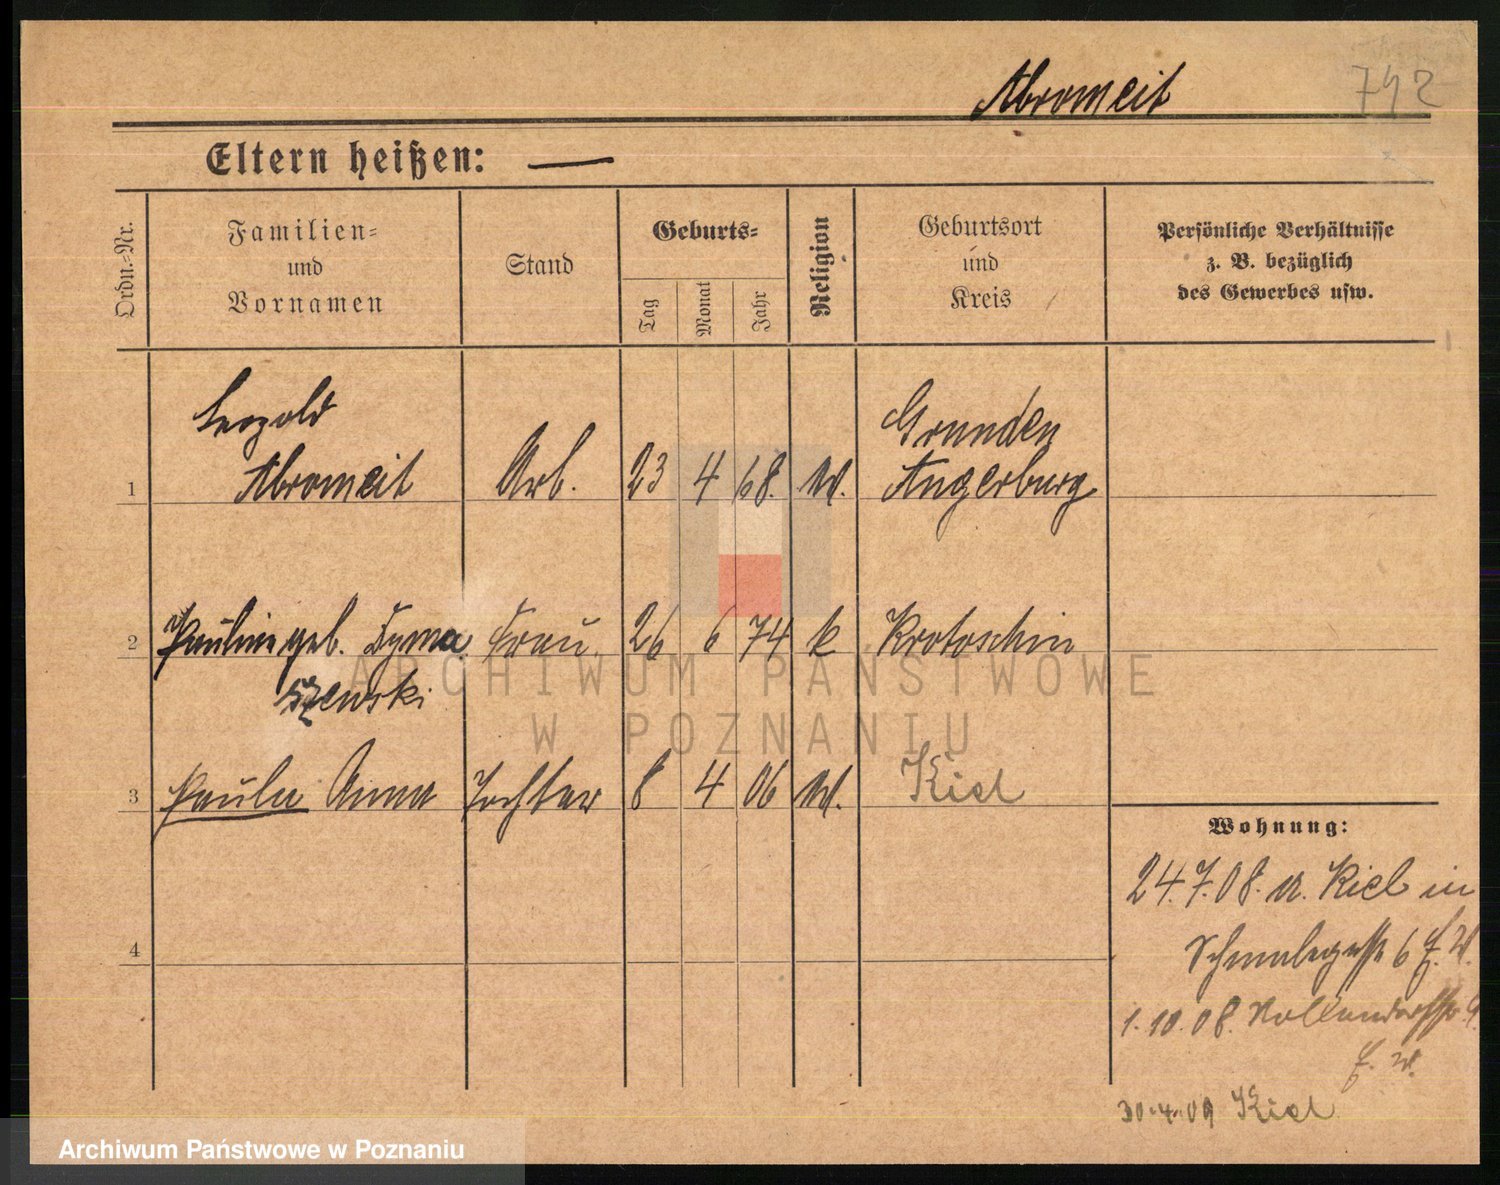 Abromeit
742
Eltern heißen: —
Ordn.-Nr.
Familien-
und
Vornamen
Stand
Geburts-
Tag
Monat
Jahr
Religion
Geburtsort
und
Kreis
Persönliche Verhältnisse
z. B. bezüglich
des Gewerbes usw.
Leopold
Grunden
1 Abromeit Arb. 23 4 68. ev. Angerburg
2 Pauline geb. Dyma Frau 26 6 74 k Krotoschin
szewski
3 Paula Anna Tochter 8 4 06 ev. Kiel
Wohnung:
24.7.08. v. Kiel in
6 E. W.
4
1.10.08.
E. W.
30.4.09 Kiel
ARCHIWUM PAŃSTWOWE
W POZNANIU
Archiwum Państwowe w Poznaniu